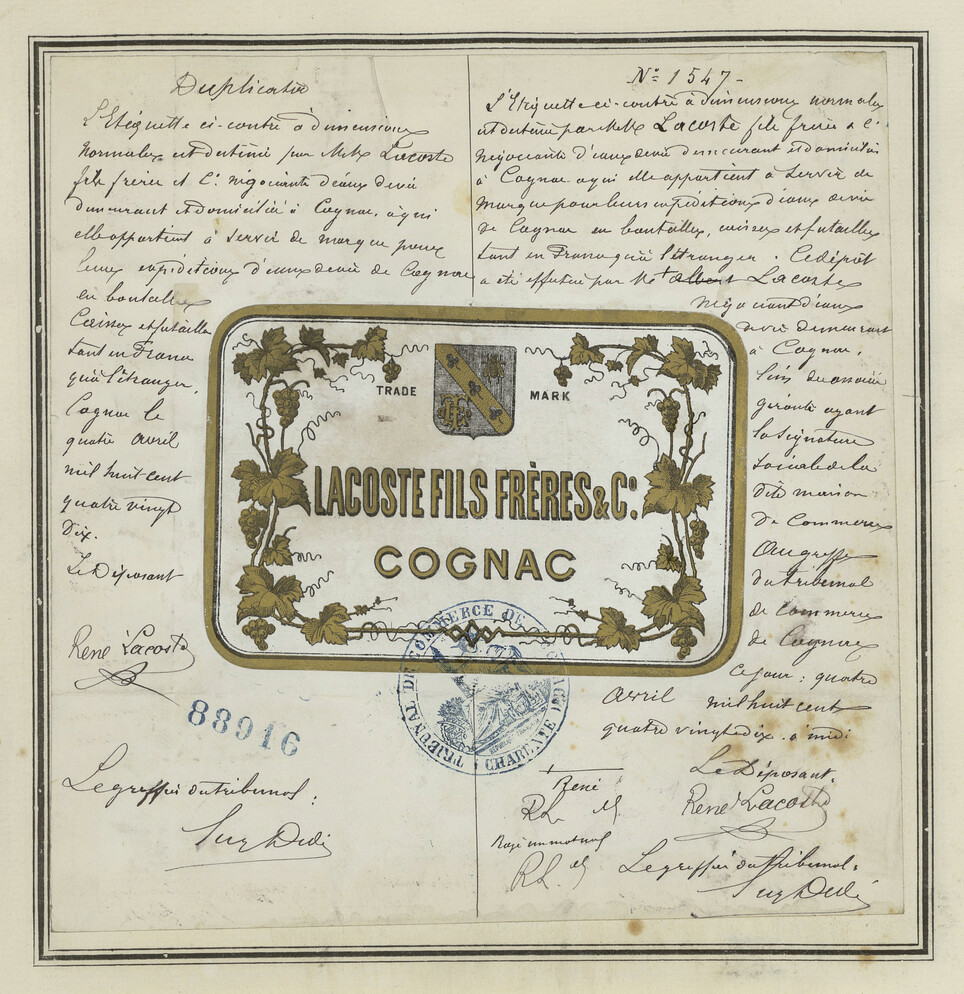 Duplicata
L'Etiquette ci-contre à dimensions
normales est destinée par MM Lacoste
fils frères et Cie négociants d'eaux de vie
demeurant et domiciliés à Cognac, à qui
elle appartient à servir de marque pour
leurs expéditions d'eaux de vie de Cognac
en bouteilles
Caisses et futailles
tant en France
qu'à l'étranger,
Cognac le
quatre avril
mil huit cent
quatre vingt
dix.
Le Déposant
René Lacoste
88916
Le greffier du tribunal:
No 1547-
L'Etiquette ci-contre à dimensions normales
est destinée par MM Lacoste fils frères & Cie
négociants d'eaux de vie demeurant et domiciliés
à Cognac à qui elle appartient à servir de
marque pour leurs expéditions d'eaux de vie
de Cognac en bouteilles, caisses et futailles
tant en France qu'à l'étranger. Ce dépôt
a été effectué par Mr Albert Lacoste
négociant d'eaux
de vie demeurant
à Cognac,
l'un des associés
gérants ayant
la signature
sociale de la
dite maison
de Commerce
Au greffe
du tribunal
de commerce
de Cognac
Ce jour: quatre
avril mil huit cent
quatre vingt dix à midi
Le Déposant.
René Lacoste
Le greffier du tribunal:
René
RL
Rayé un mot nul
RL
TRADE MARK
LACOSTE FILS FRÈRES & Co.
COGNAC
TRIBUNAL DE COMMERCE DE COGNAC
CHARENTE